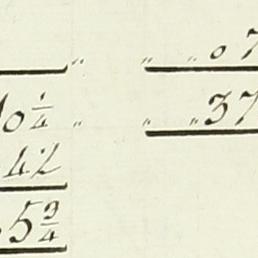 " " " 07
0 1/4 " " " 37
42
5 3/4